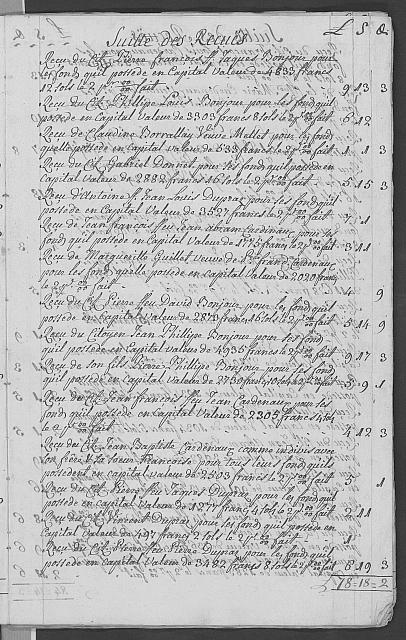 £ S &
Suitte des Recues
Recu du Cit. Pierre françois ff Jaques Bonjour pour
les fond quil possede en Capital valeur de 4833 francs
12 sols le 2 pr 00/00 fait 9 13 3
Recu du Cit. Phillipe Louis Bonjour pour les fond quil
possede en Capital Valeur de 3303 francs 8 sols le 2 pr 00/00 fait 6 12
Recu de Claudine Borrallay Veuve Mallet pour les fond
quelle possede en Capital valeur de 533 francs le 2 pr 00/00 fait 1 1 3
Recu du Cit. Gabriel Donnet pour les fond quil possede en
Capital Valeur de 2882 francs 16 sols le 2 pr 00/00 fait 5 15 3
Recu d'Antoine ff Jean Louis Dupraz pour les fond quil
possede en Capital Valeur de 3527 francs le 2 pr 00/00 fait 7 1
Recu de Jean françois feu Jean abram Cardinaux pour les
fond quil possede en Capital Valeur de 1775 francs le 2 pr 00/00 fait 3 11
Recu de Margueritte Guillet Veuve de ff frans Cardenaux
pour les fond quelle possede en Capital Valeur de 2020 francs
le 2 pr 00/00 fait 4 9
Recu du Cit. Pierre feu David Bonjour pour les fond quil
possede en Capital Valeur de 2873 francs 16 sols le 2 pr 00/00 fait 5 14 9
Recu du Citoyen Jean Phillipe Bonjour pour les fond
quil possede en Capital Valeur de 4935 francs le 2 pr 00/00 fait 9 17 3
Recu de son fils Pierre Phillipe Bonjour pour les fond
quil possede en Capital Valeur de 2730 francs 10 sols le 2 pr 00/00 fait 5 9 1
Recu du Cit. Jean françois feu Jean Cardenaux pour les
fond quil possede en Capital Valeur de 2305 francs 4 sols
le 2 pr 00/00 fait 4 12 3
Recu du Cit. Jean Baptiste Cardenaux comme indivis avec
son frere & sa sœur françoise pour tous leurs fond quils
possedent en Capital valeur de 2503 francs le 2 pr 00/00 fait 5 1
Recu du Cit. Pierre feu Jaques Dupraz pour les fond quil
possede en Capital valeur de 1277 francs 4 sols le 2 pr 00/00 fait 2 11
Recu du Cit. Vincent Dupraz pour les fond quil possede en
Capital Valeur de 497 francs 2 sols le 2 pr 00/00 fait 1
Recu du Cit. Pierre feu Pierre Dupraz pour les fond quil
possede en Capital Valeur de 3482 francs 8 sols le 2 pr 00/00 fait 6 19 3
78-18-2